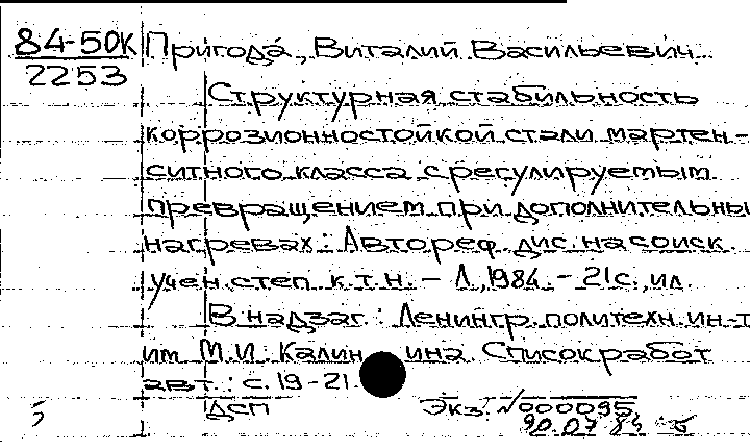 84-50К
2253
Пригода, Виталий Васильевич.
Структурная стабильность
коррозионностойкой стали мартен-
ситного класса с регулируемым
превращением при дополнительны
нагревах : Автореф. дис. на соиск.
учен. степ. к.т.н. - Л., 1984. - 21 с., ил.
В надзаг. : Ленингр. политехн. ин-т
им. М.И. Калинина. Список работ
авт. : с. 19-21.
ДСП Экз. №000095